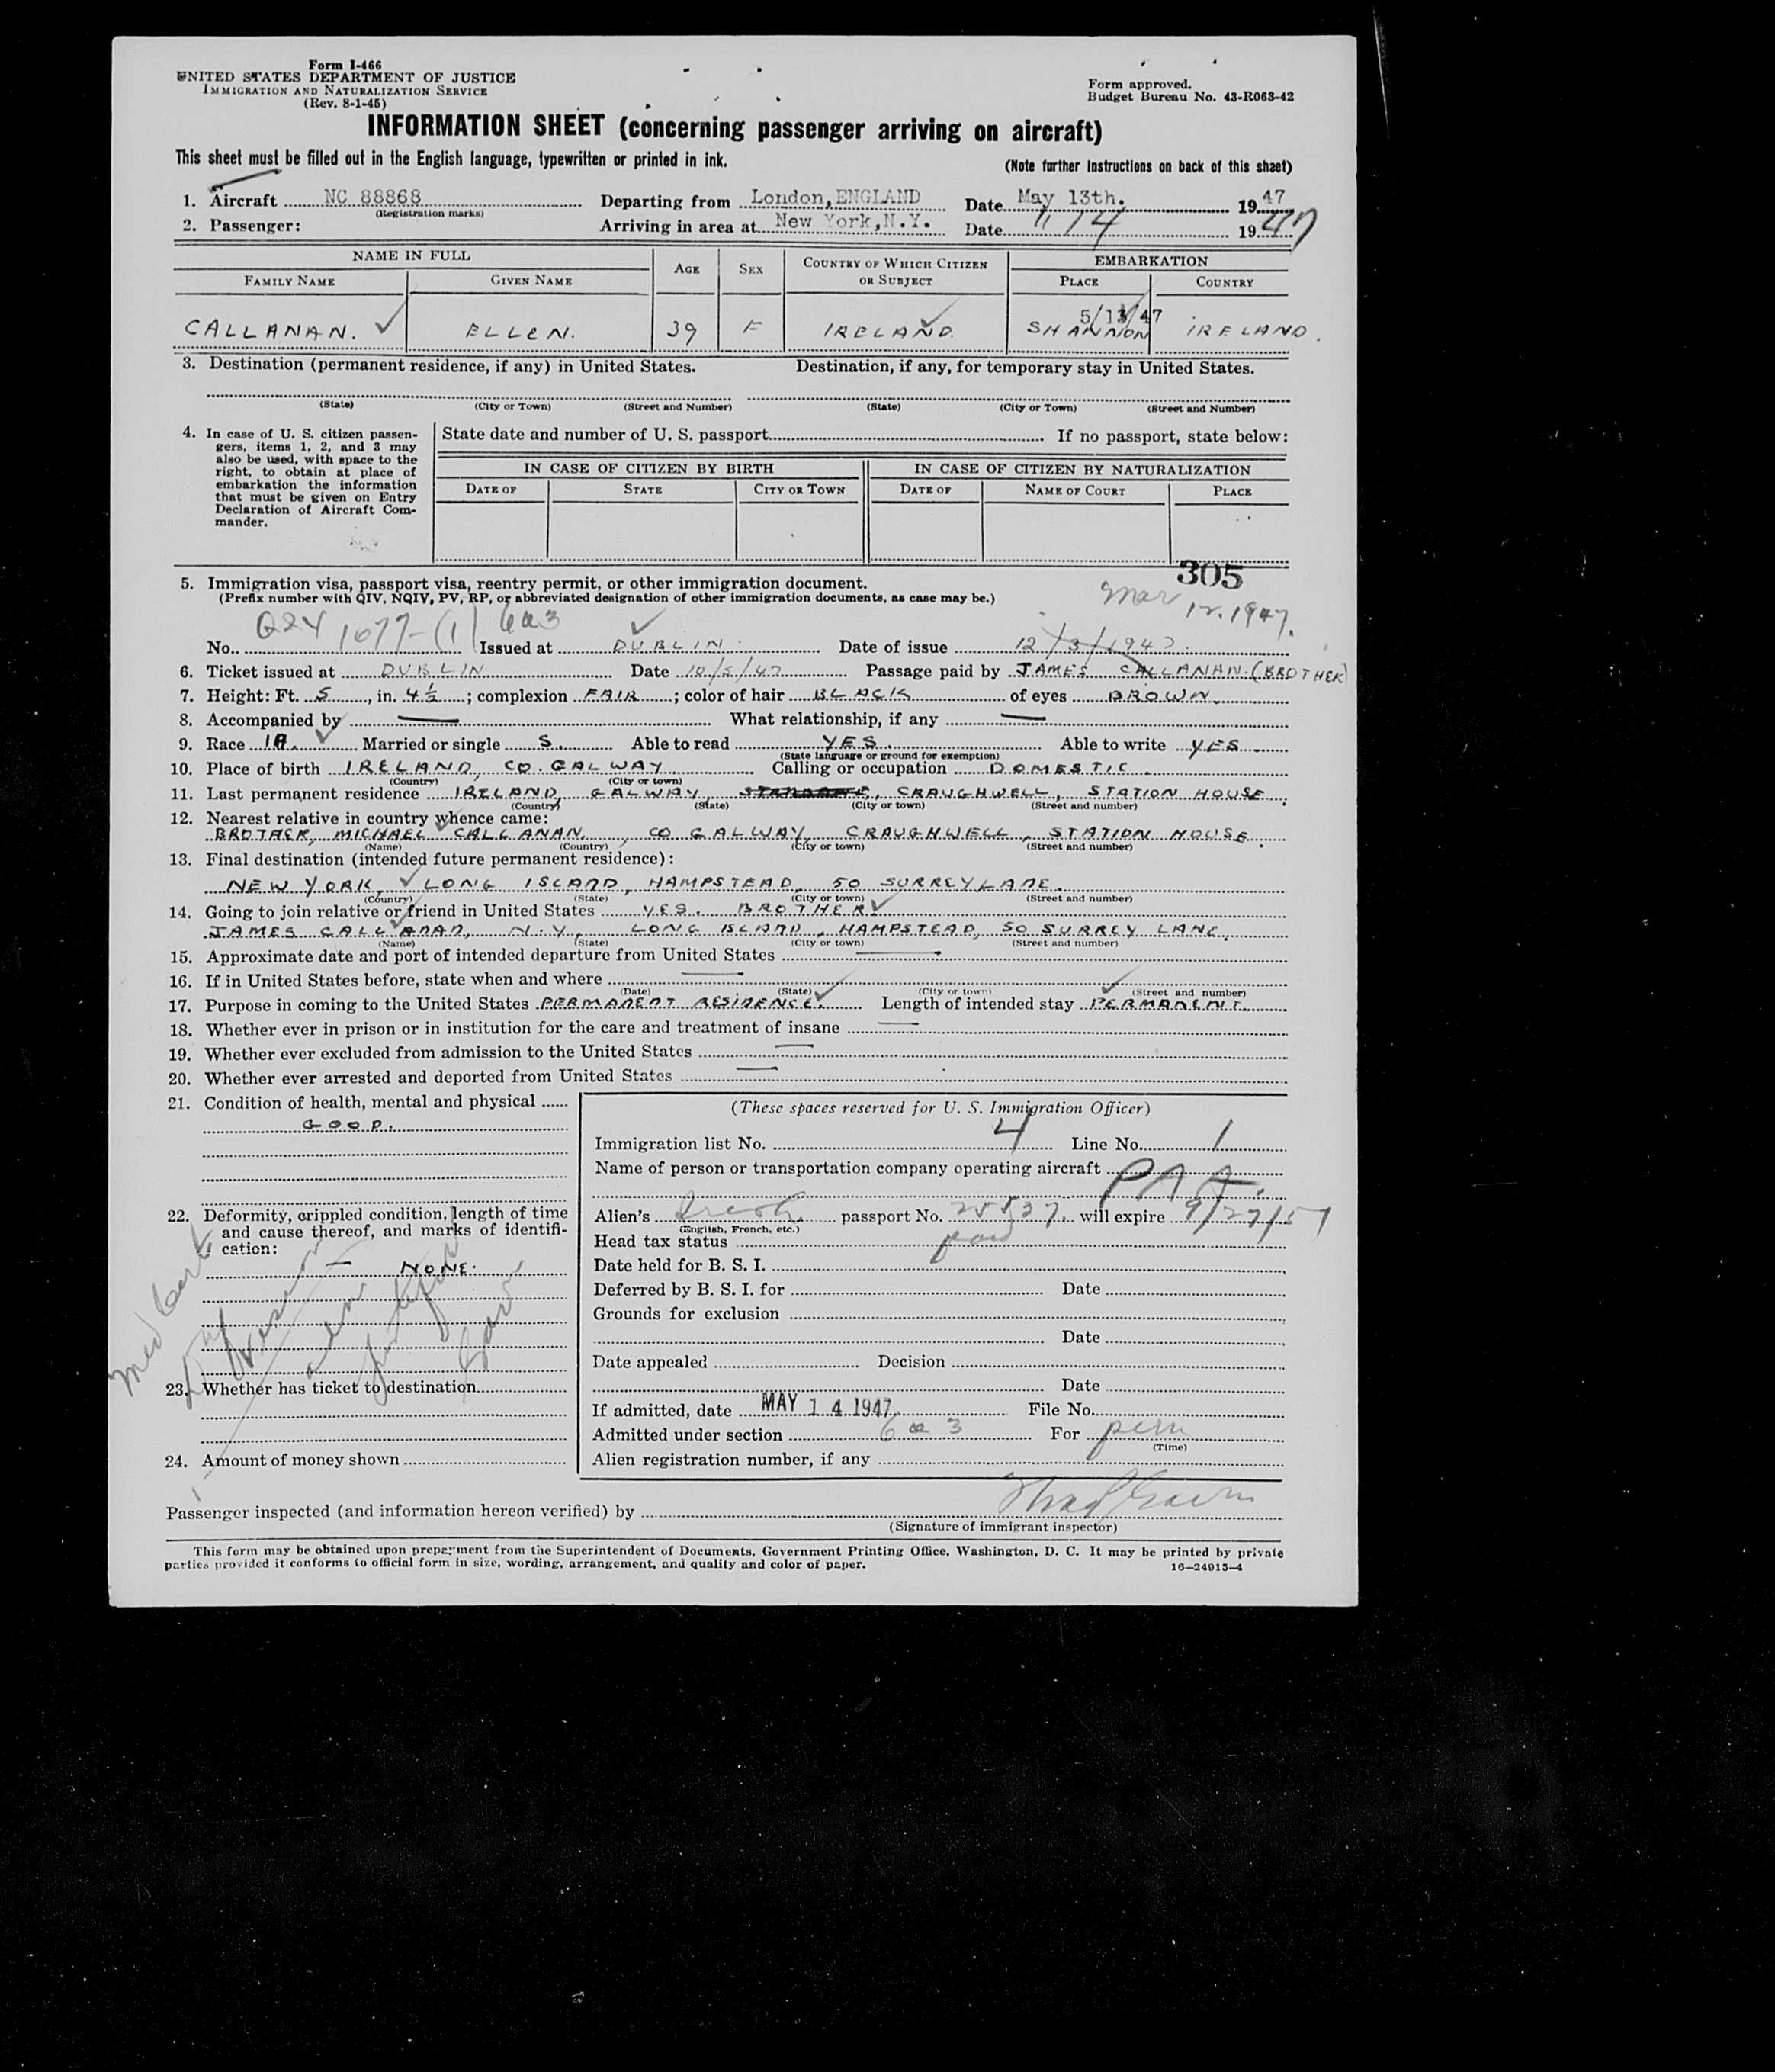 Form I-466
UNITED STATES DEPARTMENT OF JUSTICE
IMMIGRATION AND NATURALIZATION SERVICE
(Rev. 8-1-45)
Form approved.
Budget Bureau No. 43-R063-42
INFORMATION SHEET (concerning passenger arriving on aircraft)
This sheet must be filled out in the English language, typewritten or printed in ink.
(Note further instructions on back of this sheet)
1. Aircraft NC 88868 Departing from London, ENGLAND Date May 13th. 1947
(Registration marks)
2. Passenger: Arriving in area at New York, N.Y. Date " 14 1947
NAME IN FULL AGE SEX COUNTRY OF WHICH CITIZEN OR SUBJECT EMBARKATION
FAMILY NAME GIVEN NAME PLACE COUNTRY
5/13/47
CALLANAN. ELLEN. 39 F IRELAND. SHANNON IRELAND.
3. Destination (permanent residence, if any) in United States. Destination, if any, for temporary stay in United States.
(State) (City or Town) (Street and Number) (State) (City or Town) (Street and Number)
4. In case of U. S. citizen passengers, items 1, 2, and 3 may also be used, with space to the right, to obtain at place of embarkation the information that must be given on Entry Declaration of Aircraft Commander.
State date and number of U. S. passport If no passport, state below:
IN CASE OF CITIZEN BY BIRTH IN CASE OF CITIZEN BY NATURALIZATION
DATE OF STATE CITY OR TOWN DATE OF NAME OF COURT PLACE
305
5. Immigration visa, passport visa, reentry permit, or other immigration document.
(Prefix number with QIV, NQIV, PV, RP, or abbreviated designation of other immigration documents, as case may be.)
Mar 12. 1947.
1677-(1) 6a3
No. Issued at DUBLIN. Date of issue 12/3/1947.
6. Ticket issued at DUBLIN Date 10/5/47 Passage paid by JAMES CALLANAN. (BROTHER)
7. Height: Ft. 5, in. 4½; complexion FAIR; color of hair BLACK of eyes BROWN.
8. Accompanied by — What relationship, if any —
9. Race IR. Married or single S. Able to read YES. Able to write YES.
(State language or ground for exemption)
10. Place of birth IRELAND, CO. GALWAY Calling or occupation DOMESTIC.
(Country) (City or town)
11. Last permanent residence IRELAND, GALWAY, CRAUGHWELL, STATION HOUSE.
(Country) (State) (City or town) (Street and number)
12. Nearest relative in country whence came:
BROTHER, MICHAEL CALLANAN, CO GALWAY, CRAUGHWELL, STATION HOUSE.
(Name) (Country) (City or town) (Street and number)
13. Final destination (intended future permanent residence):
NEW YORK, LONG ISLAND, HAMPSTEAD, 50 SURREY LANE.
(Country) (State) (City or town) (Street and number)
14. Going to join relative or friend in United States YES. BROTHER.
JAMES CALLANAN, N.Y, LONG ISLAND, HAMPSTEAD, 50 SURREY LANE.
(Name) (State) (City or town) (Street and number)
15. Approximate date and port of intended departure from United States —
16. If in United States before, state when and where —
(Date) (State) (City or town) (Street and number)
17. Purpose in coming to the United States PERMANENT RESIDENCE. Length of intended stay PERMANENT.
18. Whether ever in prison or in institution for the care and treatment of insane —
19. Whether ever excluded from admission to the United States —
20. Whether ever arrested and deported from United States —
21. Condition of health, mental and physical
GOOD.
22. Deformity, crippled condition, length of time and cause thereof, and marks of identification:
— NONE.
Med Cert
23. Whether has ticket to destination
24. Amount of money shown
(These spaces reserved for U. S. Immigration Officer)
Immigration list No. 4 Line No. 1
Name of person or transportation company operating aircraft PAA.
Alien's Irish passport No. 25537. will expire 9/27/51
(English, French, etc.)
Head tax status paid
Date held for B. S. I.
Deferred by B. S. I. for Date
Grounds for exclusion
Date
Date appealed Decision
Date
If admitted, date MAY 14 1947 File No.
Admitted under section 6a3 For perm
(Time)
Alien registration number, if any
Passenger inspected (and information hereon verified) by
(Signature of immigrant inspector)
This form may be obtained upon prepayment from the Superintendent of Documents, Government Printing Office, Washington, D. C. It may be printed by private
parties provided it conforms to official form in size, wording, arrangement, and quality and color of paper. 16—24915-4